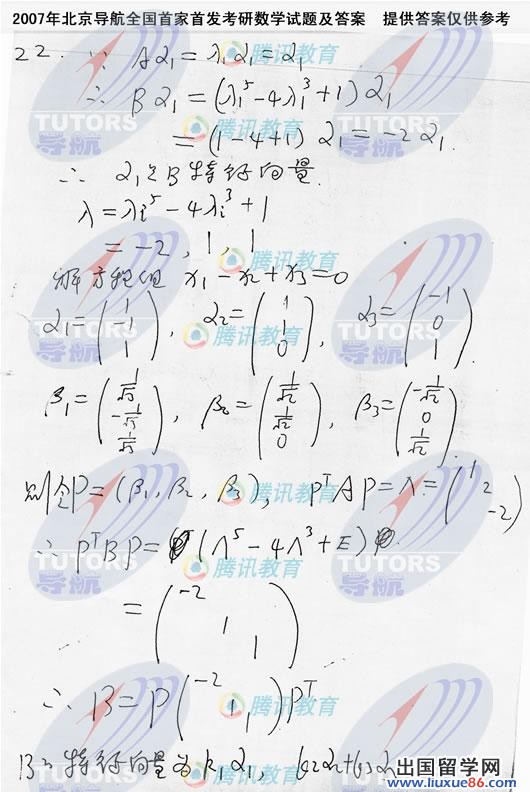 2007年北京导航全国首家首发考研数学试题及答案 提供答案仅供参考
22. ∵ Aα₁ = λ₁α₁ = α₁
∴ Bα₁ = (λ₁⁵ - 4λ₁³ + 1) α₁
= (1 - 4 + 1) α₁ = -2α₁.
∴ α₁是B特征向量.
λ = λᵢ⁵ - 4λᵢ³ + 1
= -2, 1, 1
解方程组 x₁ - x₂ + x₃ = 0
α₁ = (1, -1, 1), α₂ = (1, 1, 0), α₃ = (-1, 0, 1).
β₁ = (1/√3, -1/√3, 1/√3), β₂ = (1/√2, 1/√2, 0), β₃ = (-1/√2, 0, 1/√2).
则令P = (β₁, β₂, β₃), PᵀAP = Λ = (1 2 -2)
∴ PᵀBP = (Λ⁵ - 4Λ³ + E)
= (-2 1 1)
∴ B = P(-2 1 1)Pᵀ
B的特征向量为 k₁α₁, k₂α₂+k₃α
TUTORS
导航
腾讯教育
出国留学网
www.liuxue86.com